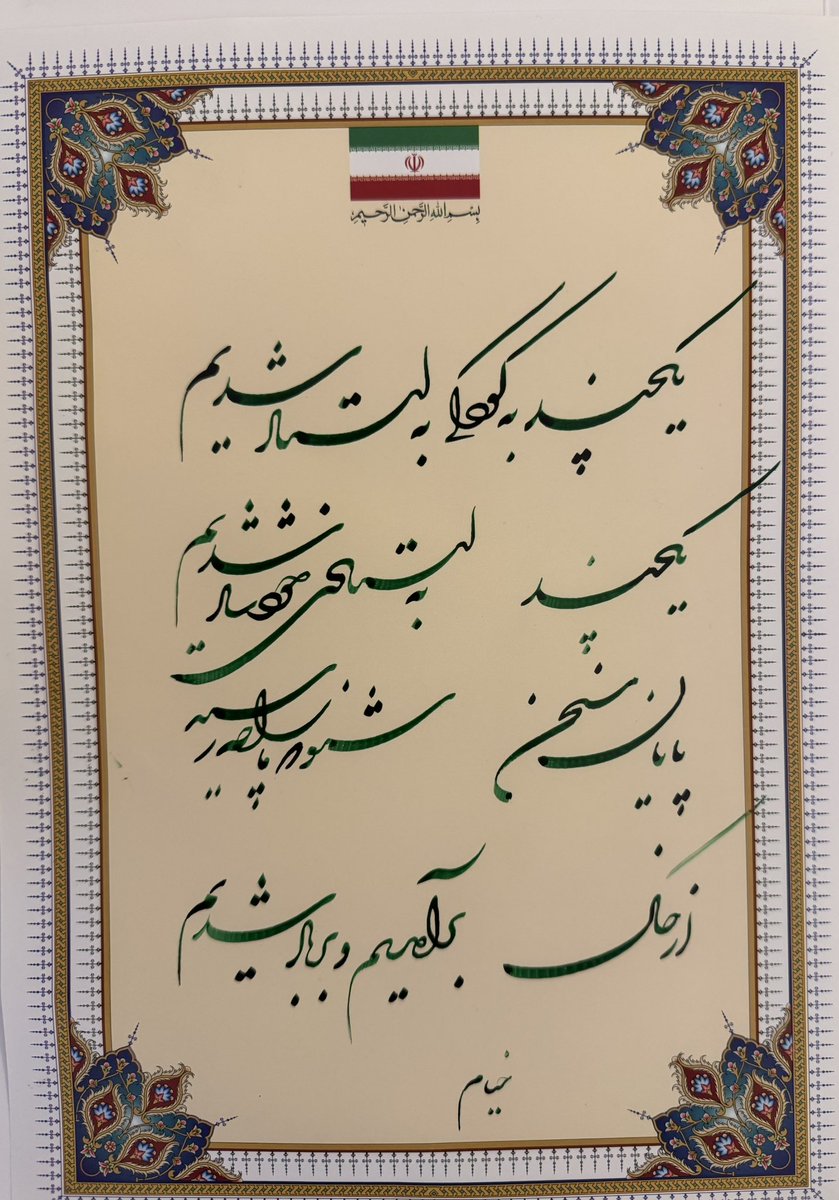 بِسْمِ اللهِ الرَّحْمنِ الرَّحيمِ
یکچند به کودکی به استاد شدیم
یکچند به استادی خود شاد شدیم
پایان سخن شنو که ما را چه رسید
از خاک برآمدیم و بر باد شدیم
خیام